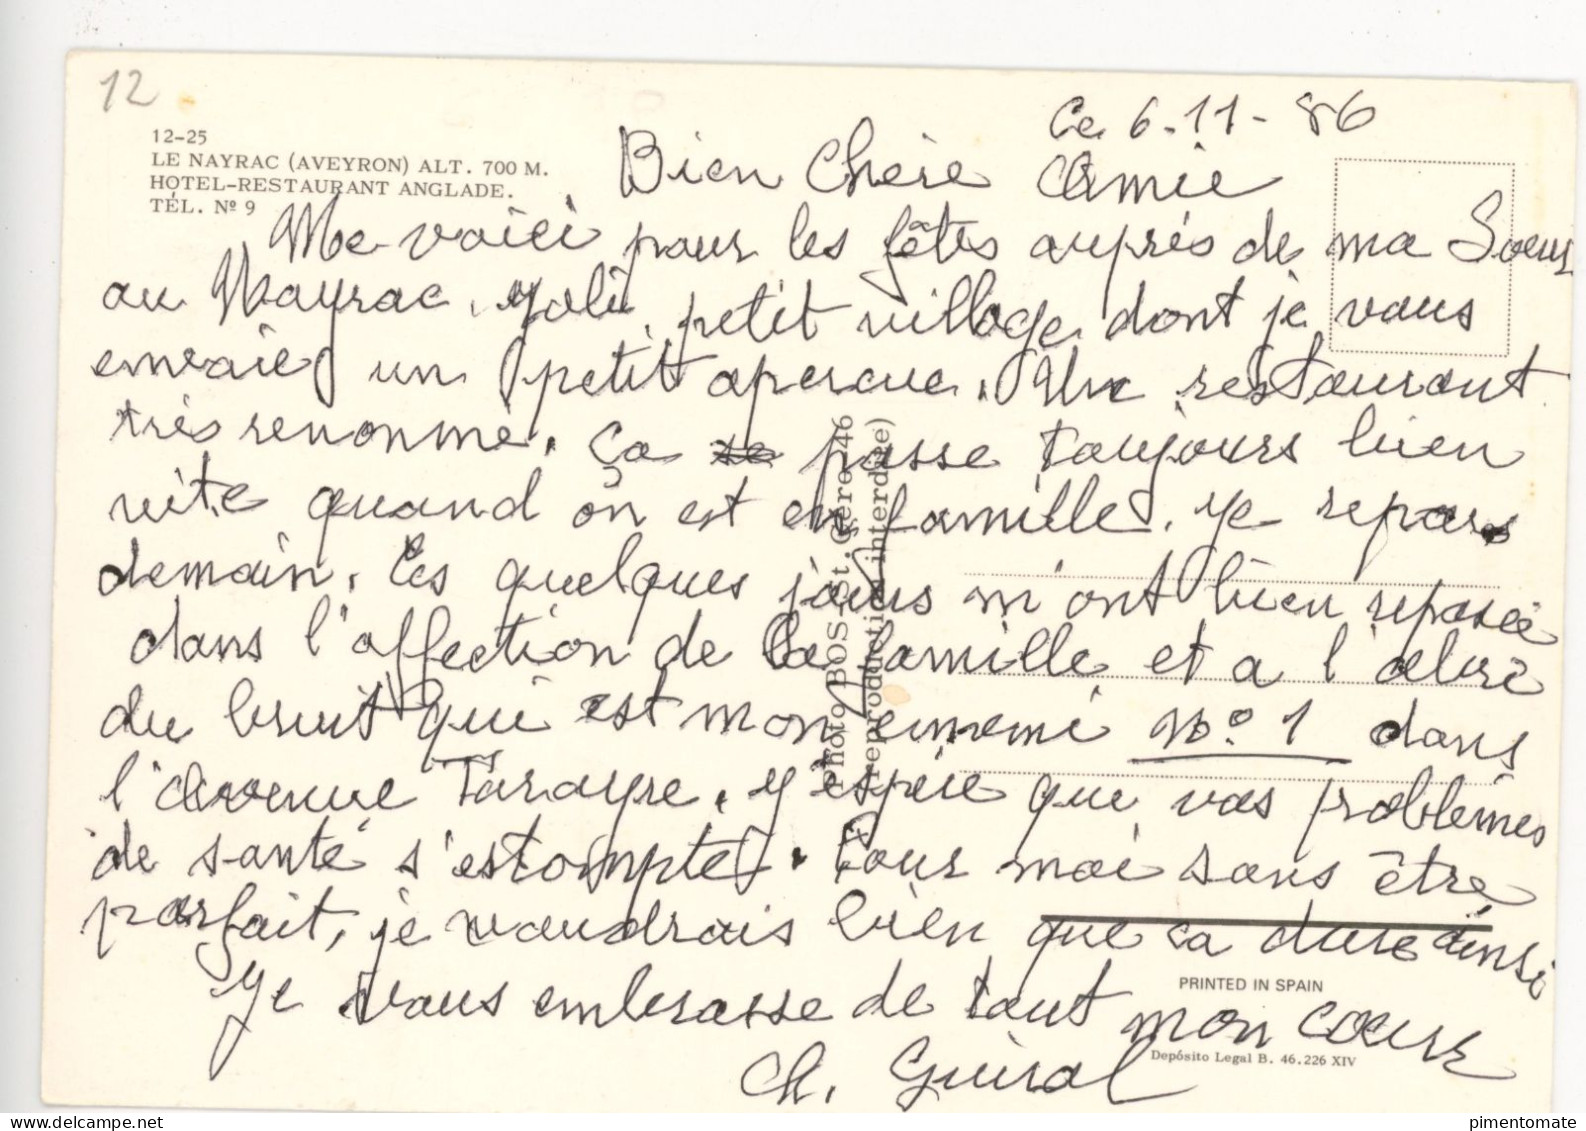 12
12-25
LE NAYRAC (AVEYRON) ALT. 700 M.
HOTEL-RESTAURANT ANGLADE.
TÉL. Nº 9
Ce 6-11-86
Bien Chère Amie
Me voici pour les fêtes auprès de ma Soeur
au Nayrac. Joli petit village dont je vous
envoie un petit apercue. Un restaurant
très renommé. Ça se passe toujours bien
vite quand on est en famille. Je repars
demain. Ces quelques jours m'ont bien reposée
dans l'affection de la famille et a l'abri
du bruit qui est mon ennemi Nº 1 dans
l'avenue Tarayre. J'espère que vos problèmes
de santé s'estompte. Pour moi sans être
parfait, je voudrais bien que ça dure ainsi
Je vous embrasse de tout mon coeur
Ch. Guiral
Photo BOS - St. Céré - 46
(reproduction interdite)
PRINTED IN SPAIN
Depósito Legal B. 46.226 XIV
pimentomate